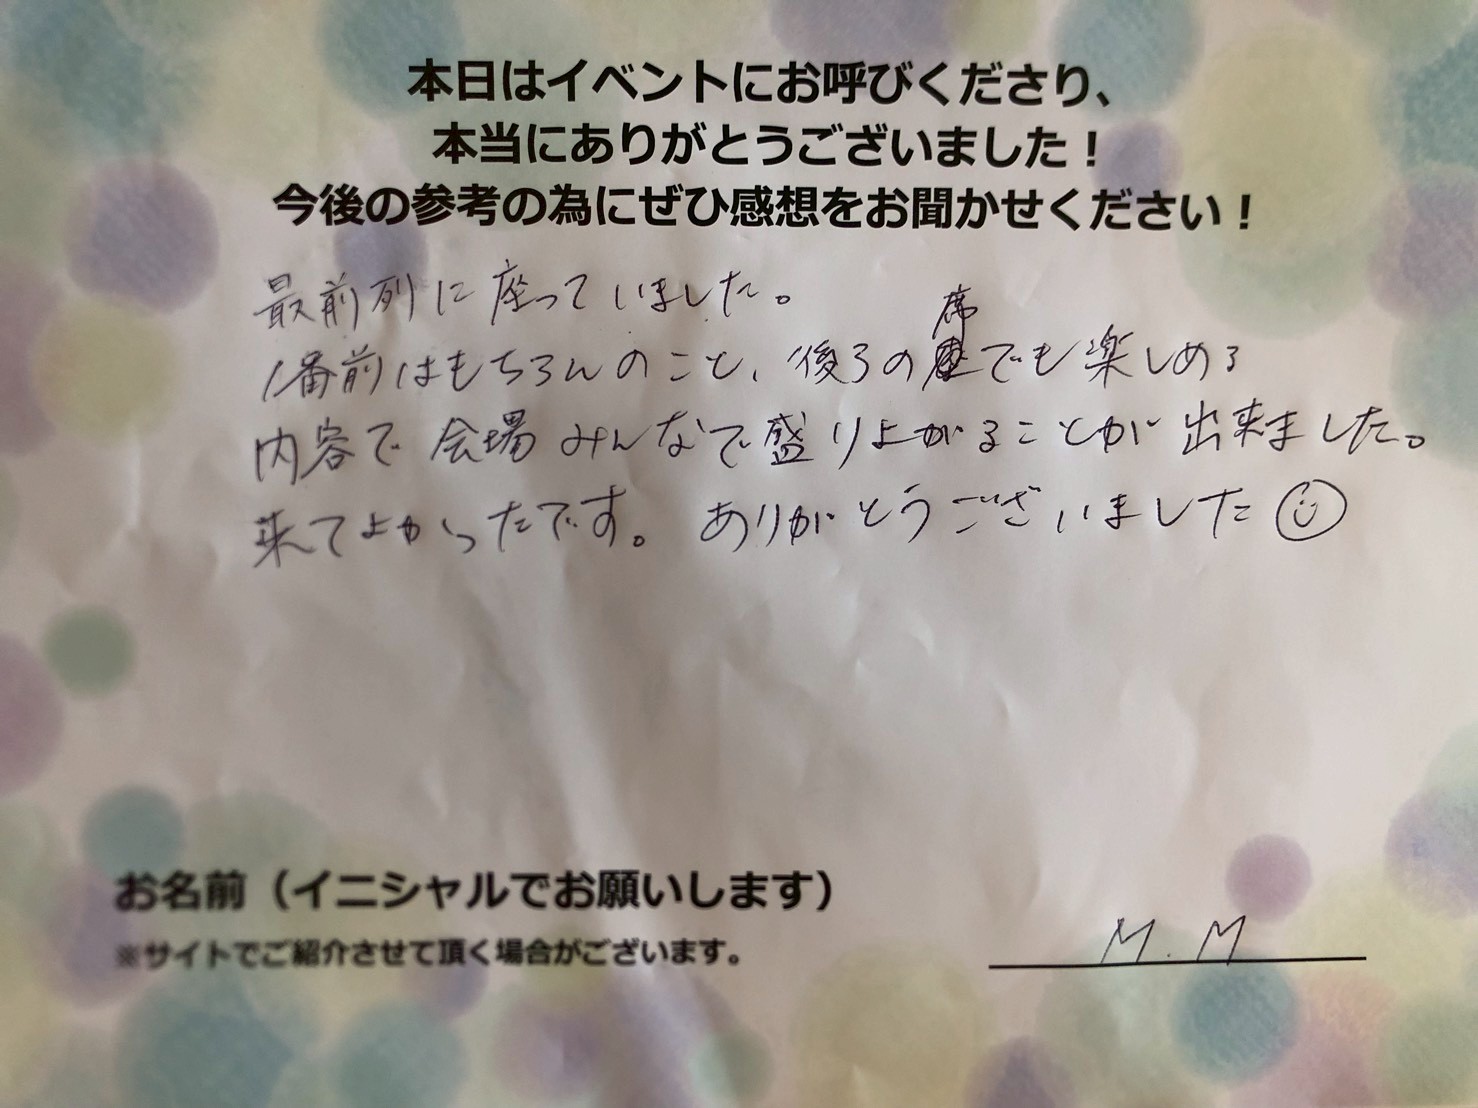 本日はイベントにお呼びくださり、
本当にありがとうございました！
今後の参考の為にぜひ感想をお聞かせください！
最前列に座っていました。
1番前はもちろんのこと、後ろの席でも楽しめる
内容で会場みんなで盛り上がることが出来ました。
来てよかったです。ありがとうございました
お名前（イニシャルでお願いします）
※サイトでご紹介させて頂く場合がございます。
M.M